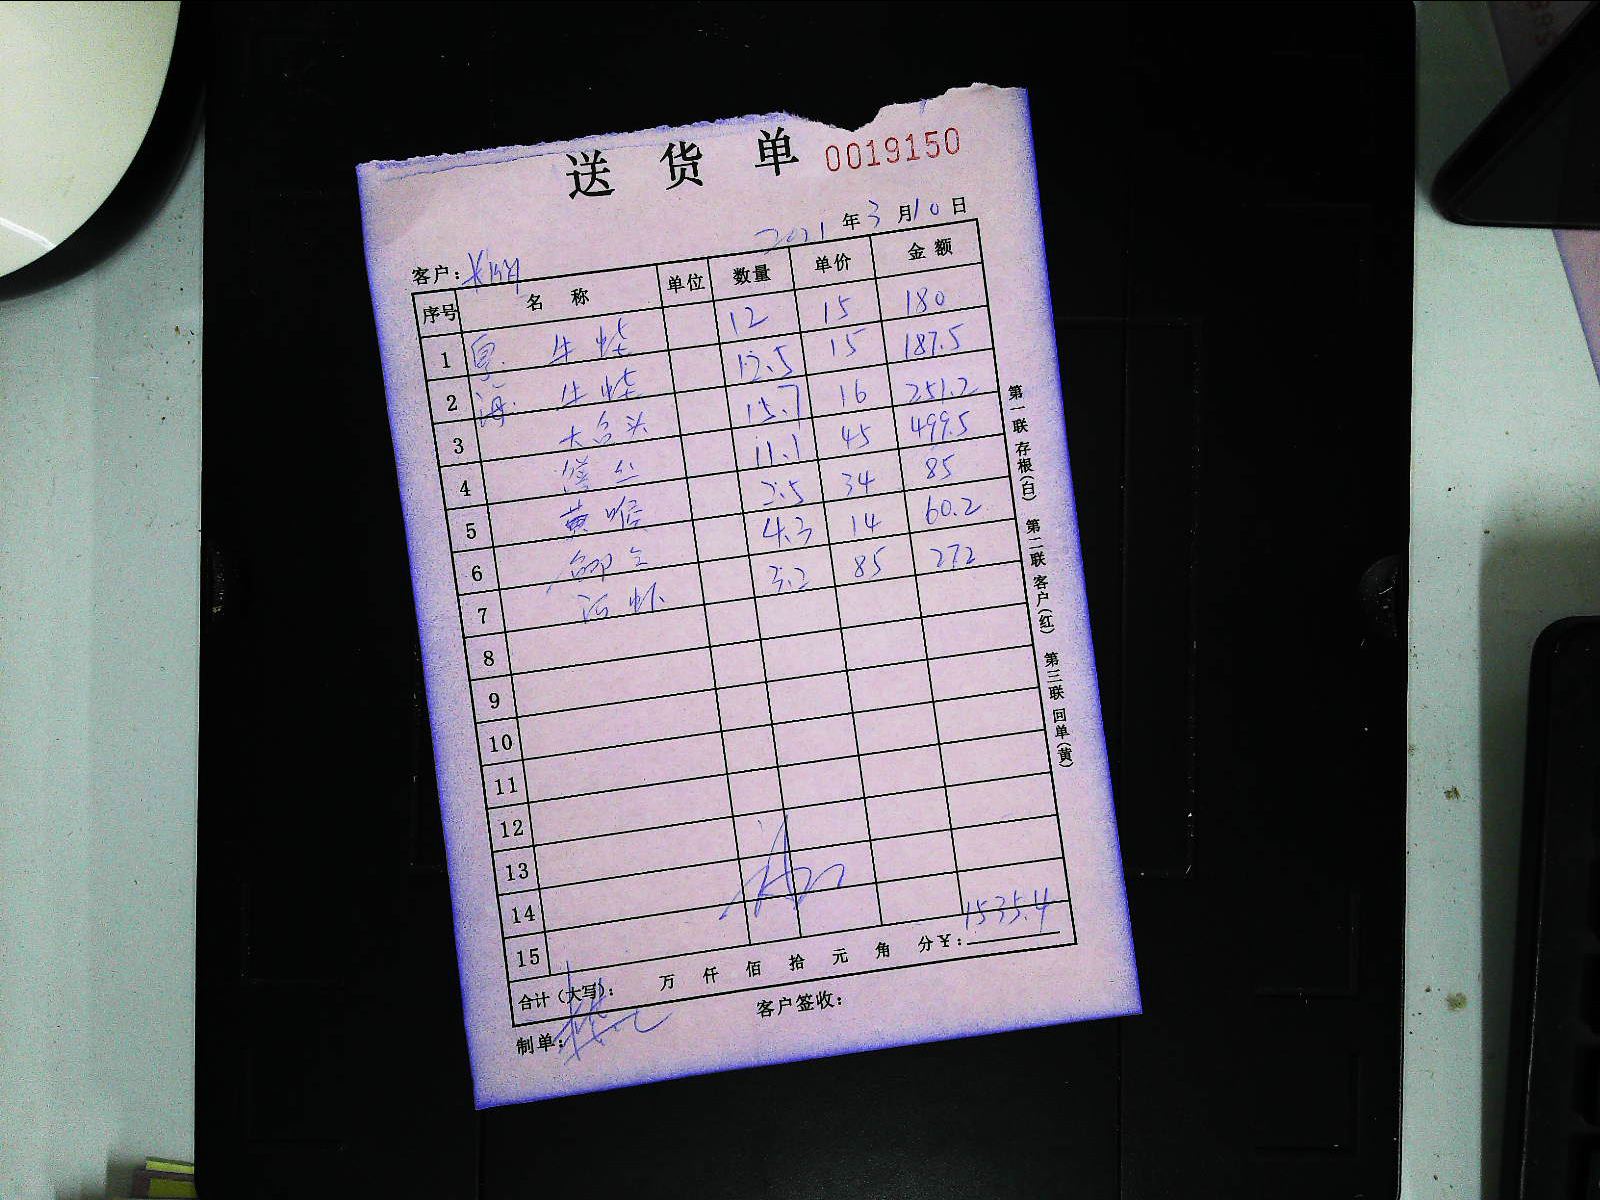 送货单 0019150
2021年3月10日
客户:
序号 名称 单位 数量 单价 金额
1 牛蛙 12 15 180
2 海 牛蛙 12.5 15 187.5
3 大鱼头 15.7 16 251.2
4 11.1 45 499.5
5 黄喉 2.5 34 85
6 4.3 14 60.2
7 河虾 3.2 85 272
8
9
10
11
12
13
14
15
合计(大写): 万 仟 佰 拾 元 角 分 ¥: 1535.4
制单: 客户签收:
第一联 存根(白) 第二联 客户(红) 第三联 回单(黄)